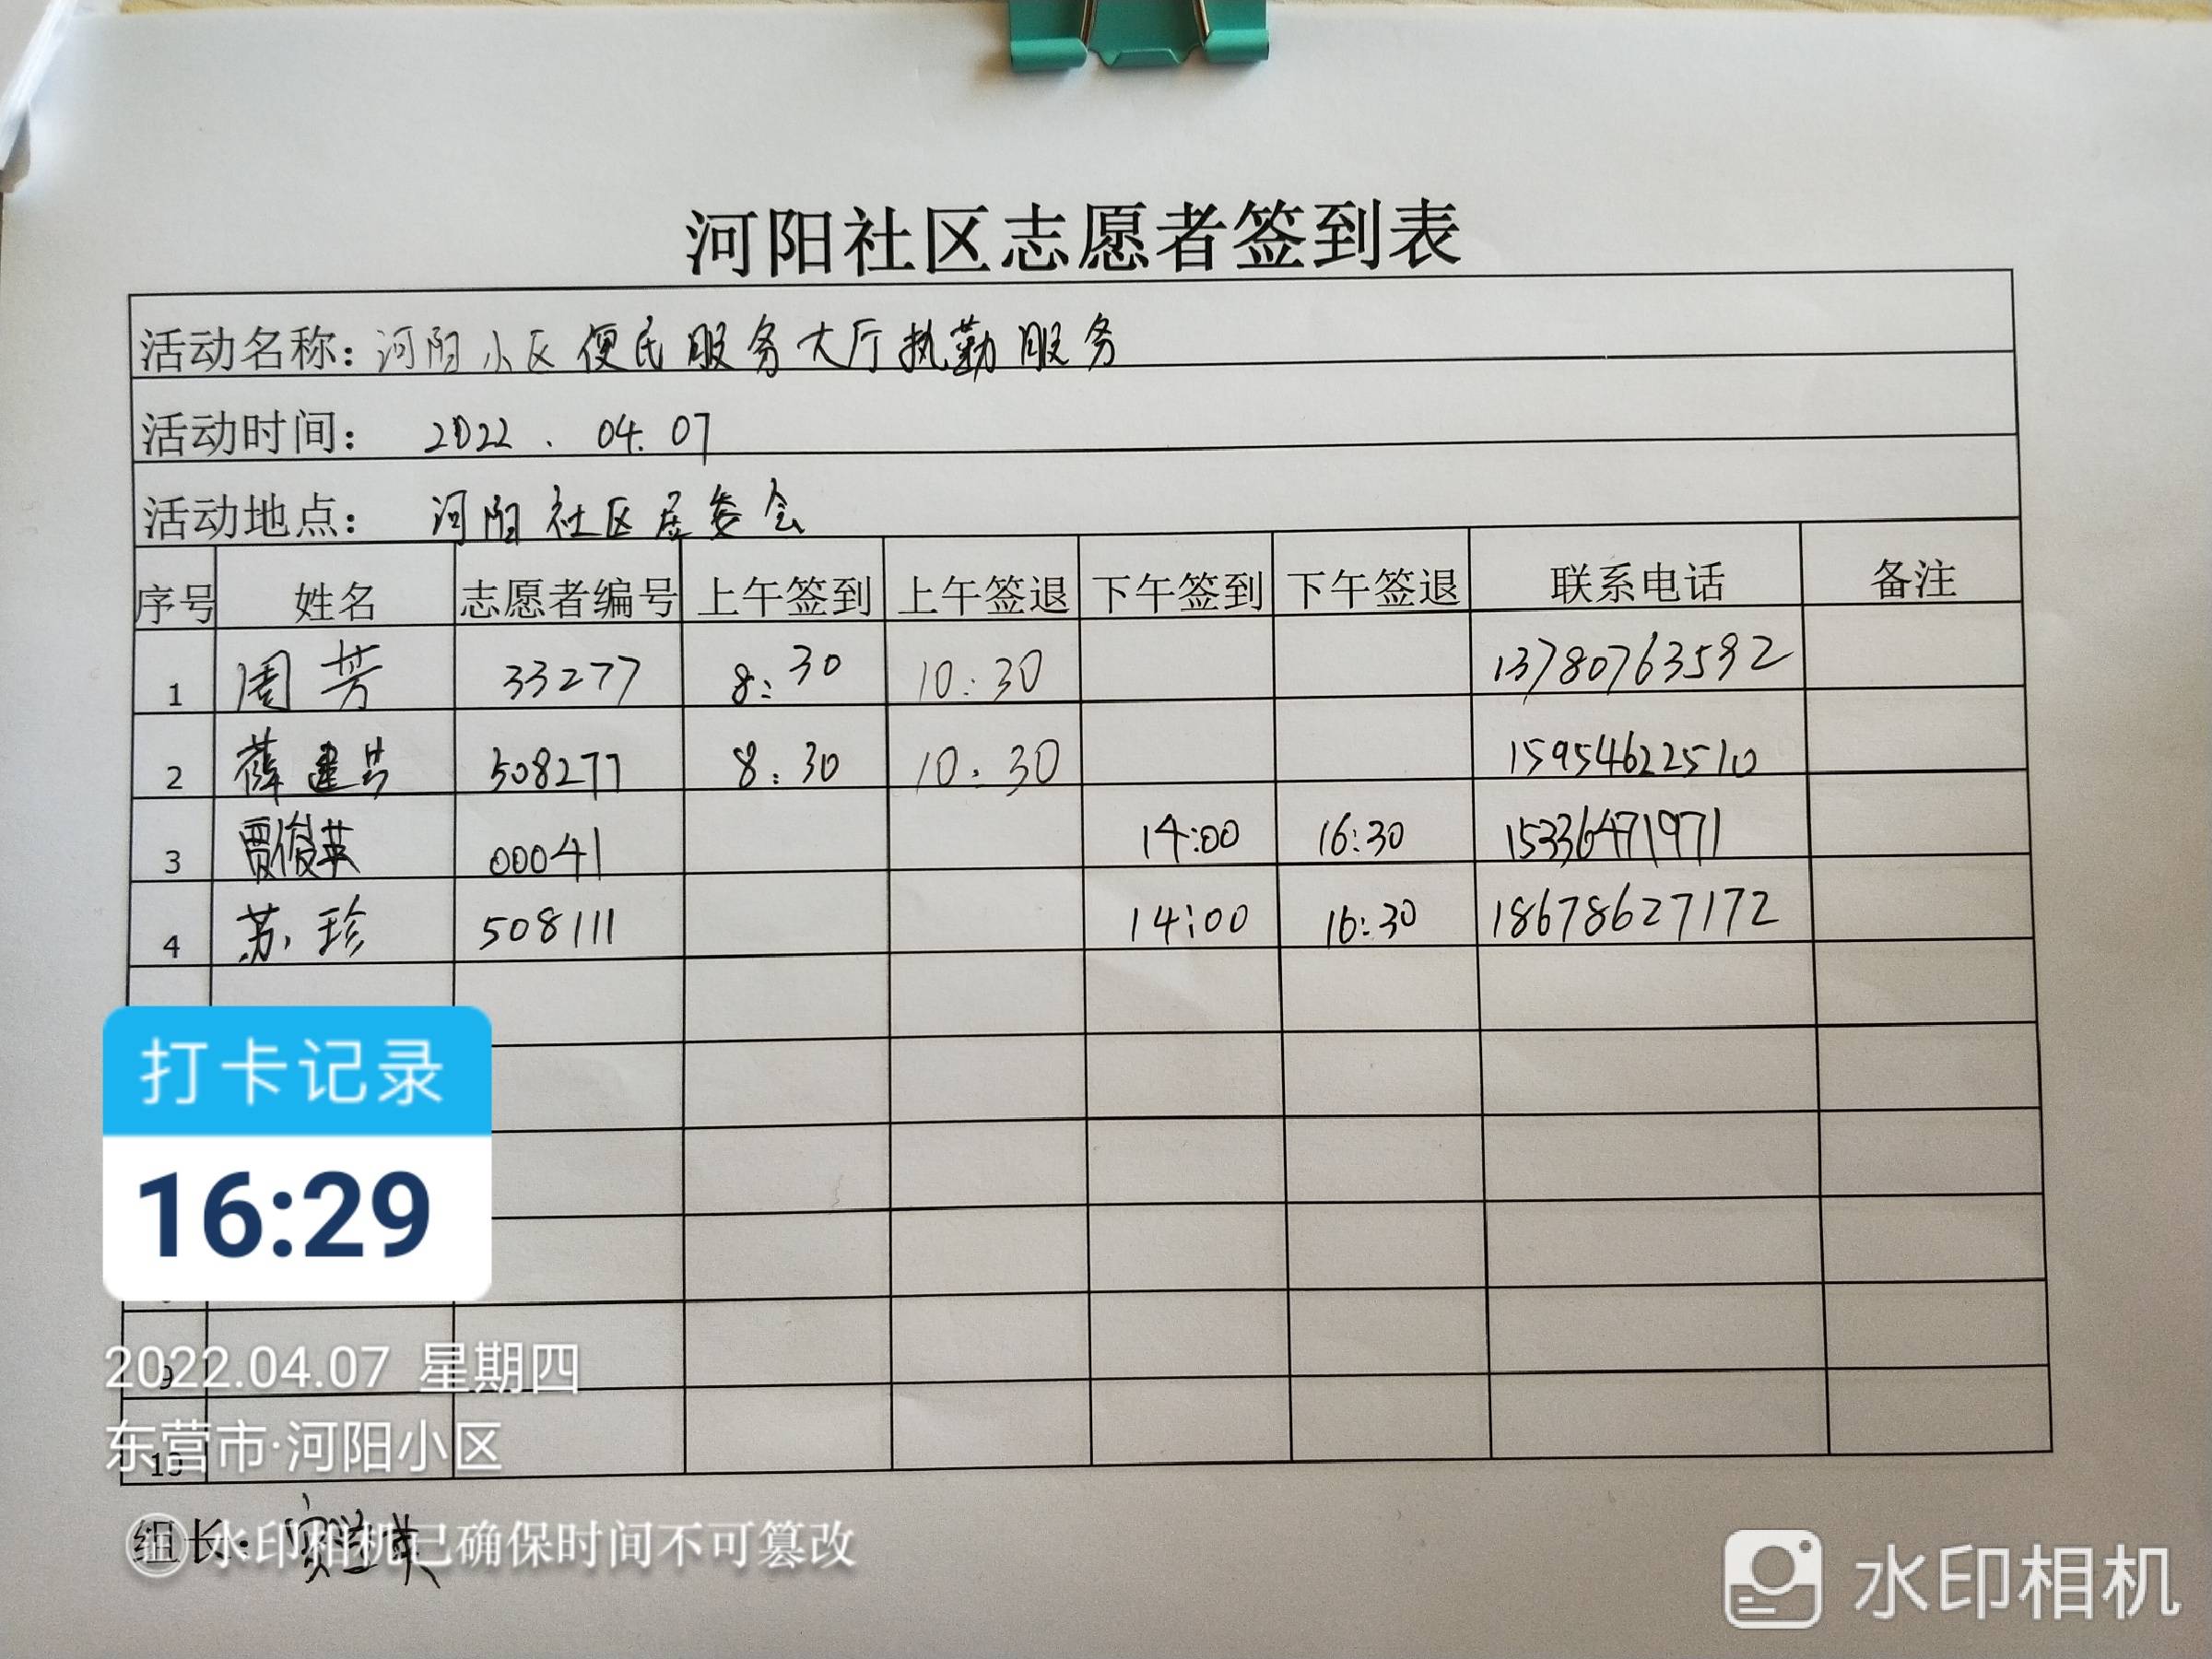 河阳社区志愿者签到表
活动名称：河阳小区便民服务大厅执勤服务
活动时间： 2022．04.07
活动地点： 河阳社区居委会
序号 姓名 志愿者编号 上午签到 上午签退 下午签到 下午签退 联系电话 备注
1 周芳 33277 8:30 10:30 13780763592
2 薛建 508277 8:30 10:30 15954622510
3 贾俊英 00041 14:00 16:30 15336471971
4 苏珍 508111 14:00 16:30 18678627172
打卡记录
16:29
9
2022.04.07 星期四
10
东营市·河阳小区
组长：
水印相机已确保时间不可篡改
水印相机